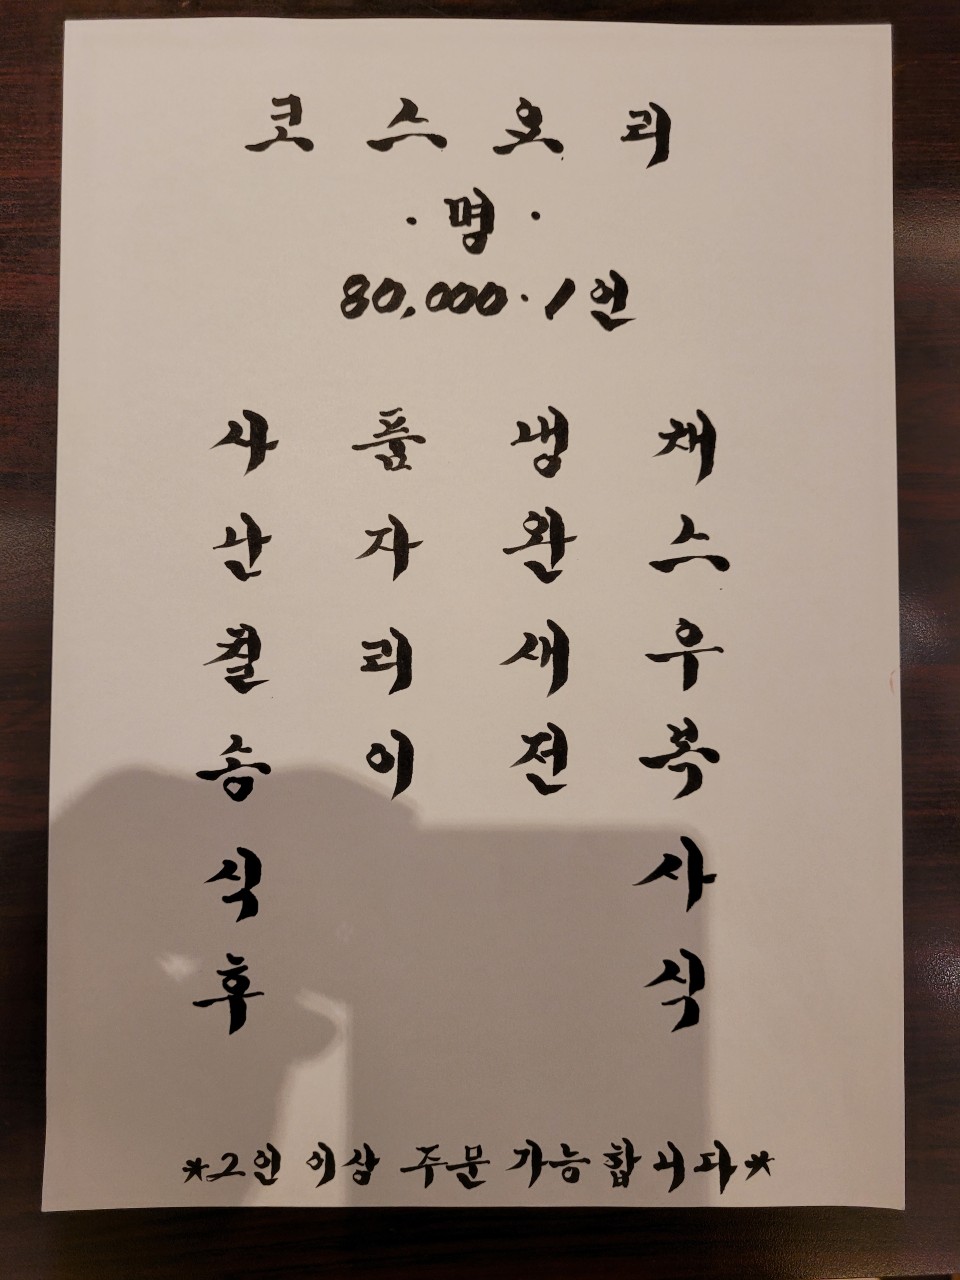 코 스 요 리
· 명 ·
80,000·1인
사 품 냉 채
난 자 완 스
칠 리 새 우
송 이 전 복
식 사
후 식
*2인 이상 주문 가능합니다*